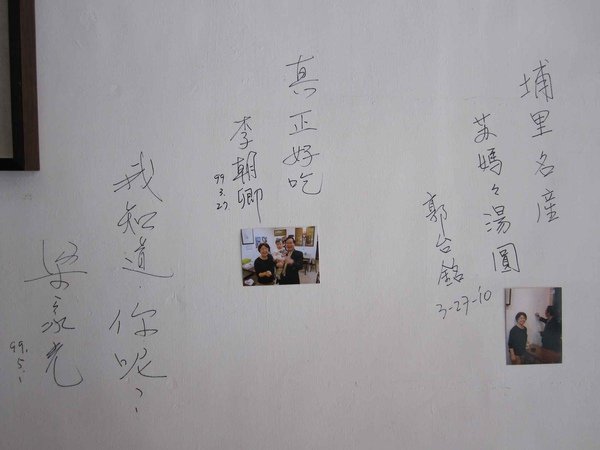 埔里名產
苏媽々湯圓
郭台銘
3-27-10
真正好吃
李朝卿
99.
3.
27
我知道.你呢?
梁永光
99.
5.
1